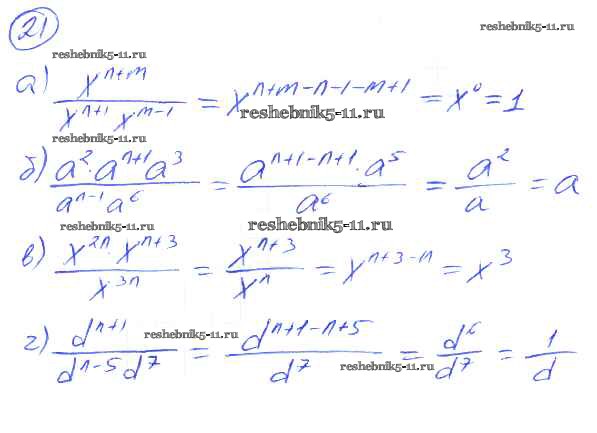 21
reshebnik5-11.ru
reshebnik5-11.ru
а) x^{n+m} / (x^{n+1} x^{m-1}) = x^{n+m-n-1-m+1} = x^0 = 1
reshebnik5-11.ru
reshebnik5-11.ru
б) (a^2 · a^{n+1} a^3) / (a^{n-1} a^6) = (a^{n+1-n+1} · a^5) / a^6 = a^2 / a = a
reshebnik5-11.ru
reshebnik5-11.ru
в) (x^{2n} · x^{n+3}) / x^{3n} = x^{n+3} / x^n = x^{n+3-n} = x^3
reshebnik5-11.ru
г) d^{n+1} / (d^{n-5} d^7) = d^{n+1-n+5} / d^7 = d^6 / d^7 = 1 / d
reshebnik5-11.ru